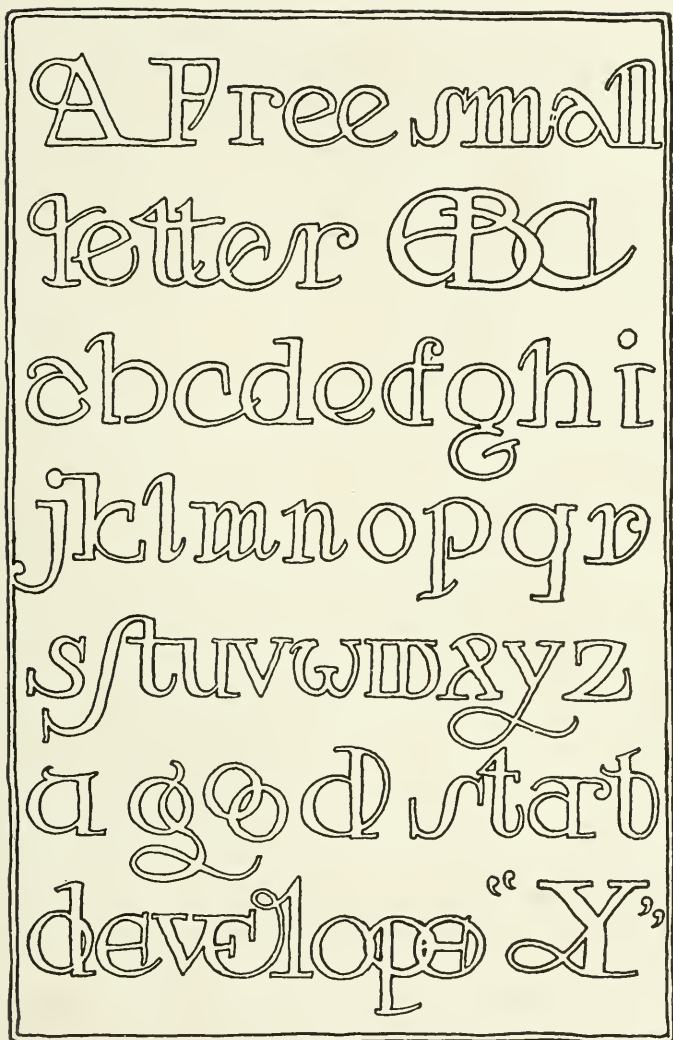 A Free small
letter EBC
abcdefghi
jklmnopqr
sſtuvwwxyz
a good start
develope “Y”